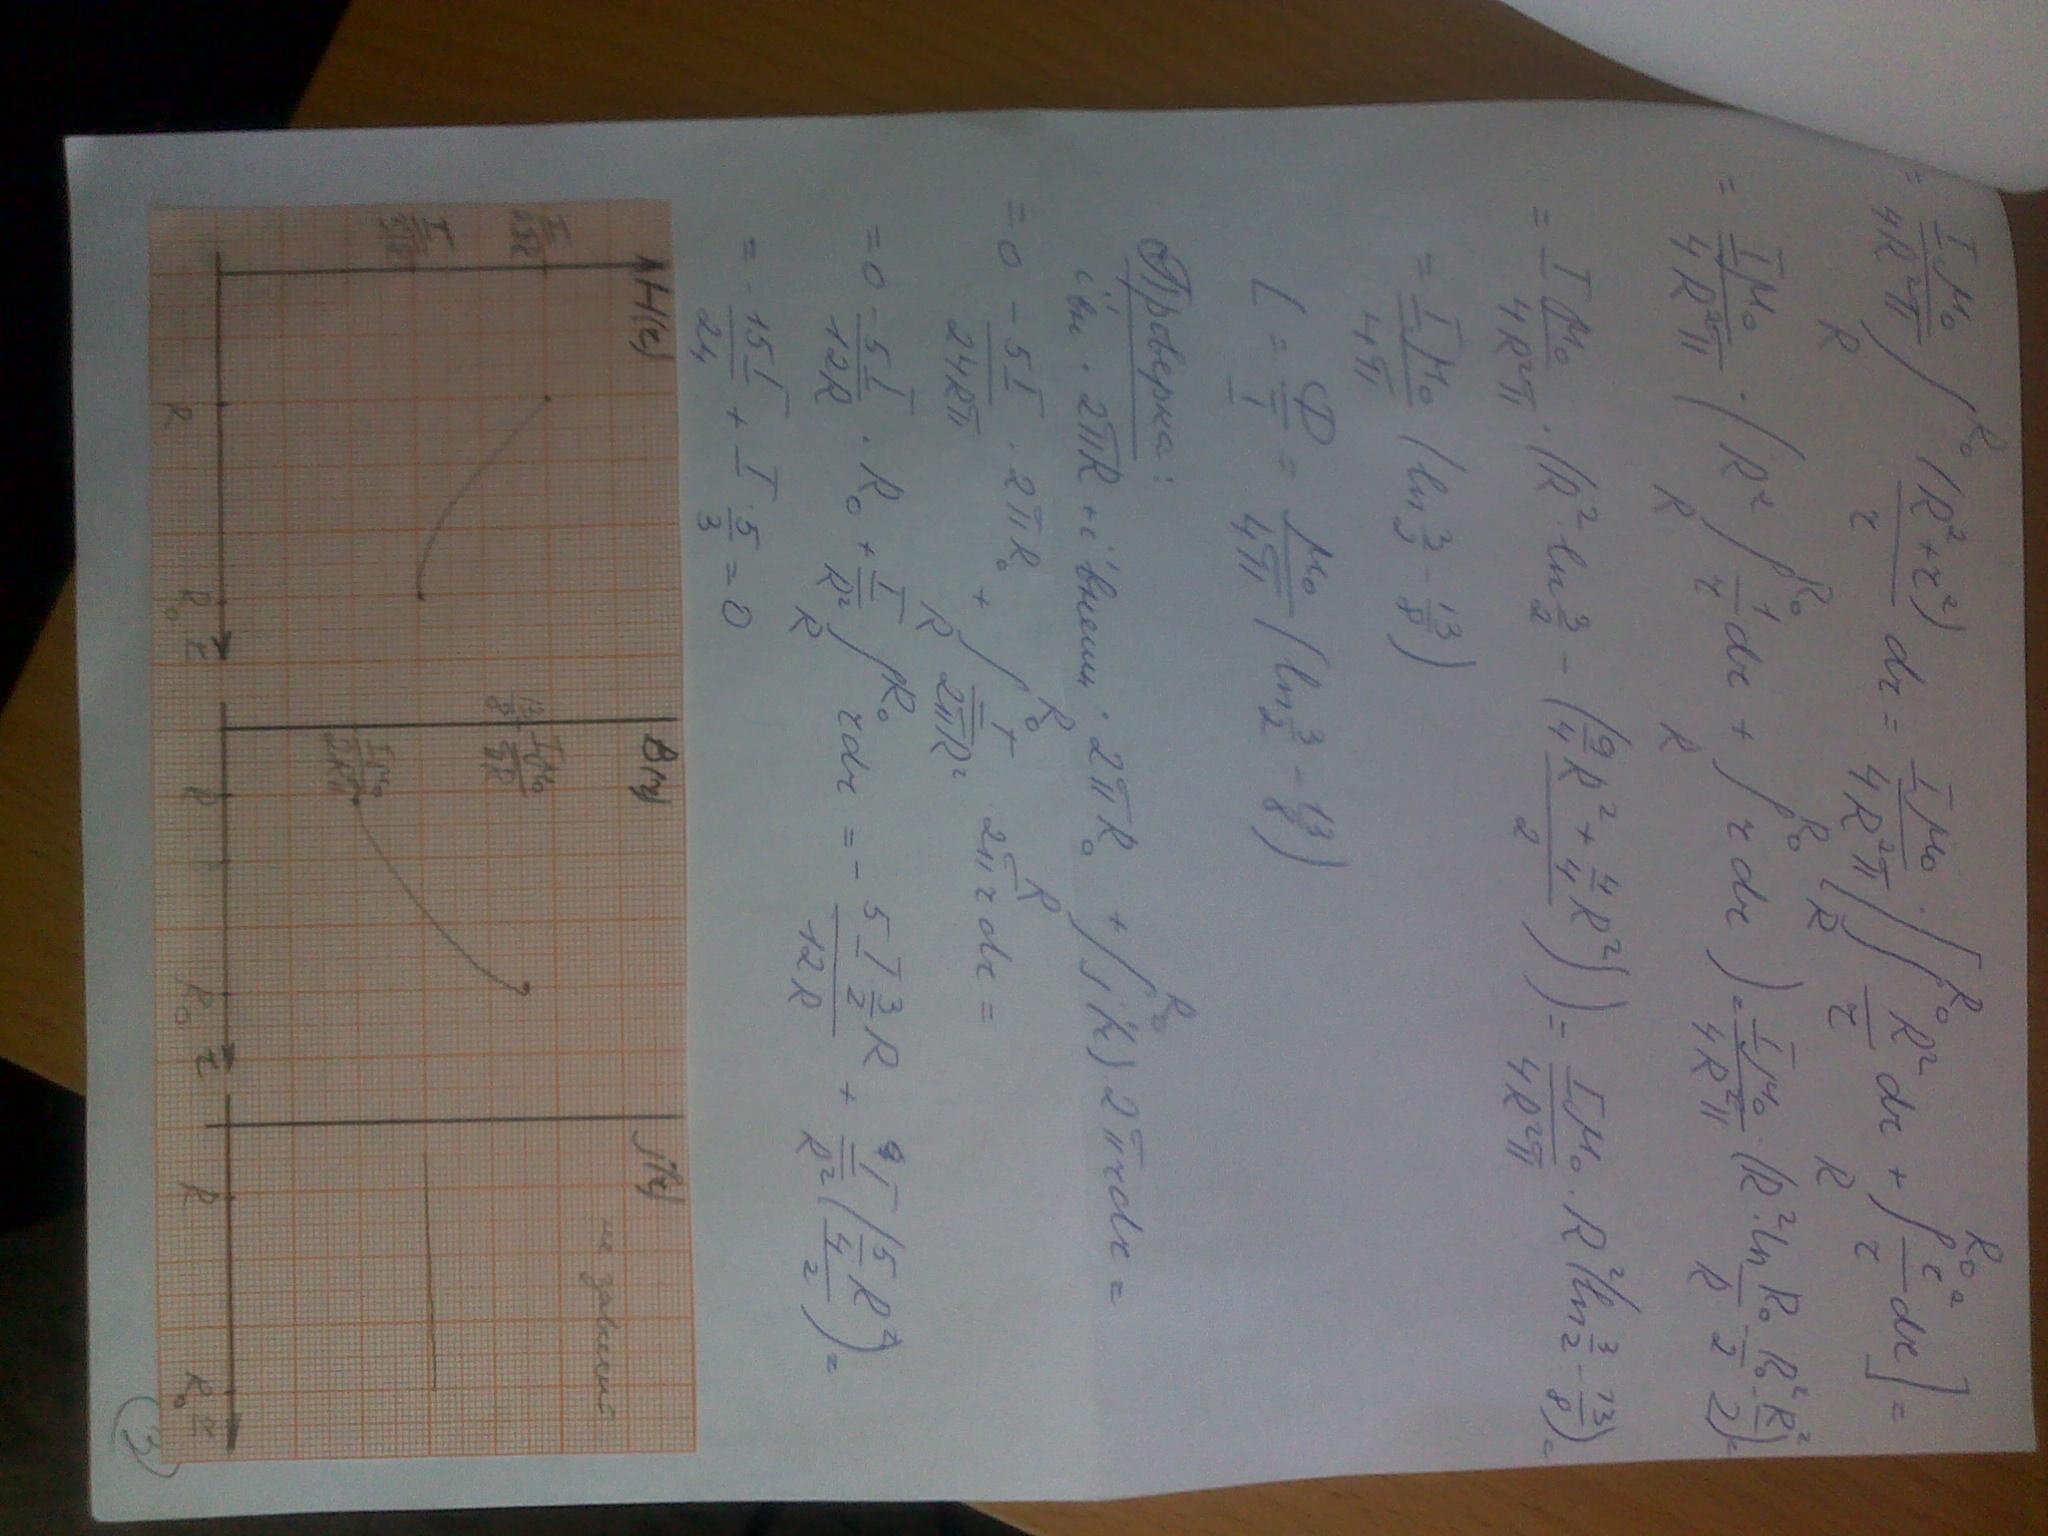 = Iμ₀/4R²π ∫_R^R₀ (R²+r²)/r dr = Iμ₀/4R²π · [∫_R^R₀ R²/r dr + ∫_R^R₀ r²/r dr] =
= Iμ₀/4R²π · (R² ∫_R^R₀ 1/r dr + ∫_R^R₀ r dr) = Iμ₀/4R²π · (R²·ln R₀/R - R₀²/2 - R²/2) =
= Iμ₀/4R²π · (R²·ln 3/2 - (9/4 R² + 4/4 R²)/2)) = Iμ₀/4R²π · R²(ln 3/2 - 13/8) =
= Iμ₀/4π (ln 3/2 - 13/8)
L = Φ/I = μ₀/4π (ln 3/2 - 13/8)
Проверка:
i'вн · 2πR + i'внешн · 2πR₀ + ∫_R^R₀ j'(r) 2πr dr =
= 0 - 5I/24Rπ · 2πR₀ + ∫_R^R₀ I/2πR² · 2πr dr =
= 0 - 5I/12R · R₀ + I/R² ∫_R^R₀ r dr = - 5I·3/2 R/12R + I/R² (5/4 R²/2) =
= - 15I/24 + I · 5/3 = 0
H(r) B(r) j'(r)
не зависит
13/8 Iμ₀/πR
Iμ₀/2Rπ
R R₀ r R R₀ r R R₀ r
3